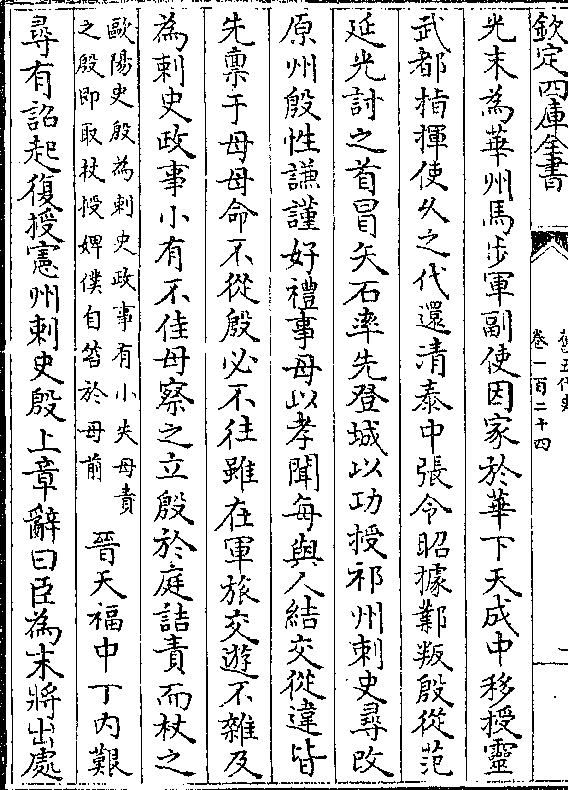 欽定四庫全書
舊五代史
卷一百二十四
一
光末為華州馬步軍副使因家於華下天成中移授靈
武都指揮使久之代還清泰中張令昭據鄴叛殷從范
延光討之首冒矢石率先登城以功授祁州刺史尋改
原州殷性謙謹好禮事母以孝聞每與人結交從違皆
先禀于母母命不從殷必不往雖在軍旅交遊不雜及
為刺史政事小有不佳母察之立殷於庭詰責而杖之
歐陽史殷為刺史政事有小失母責
之殷即取杖授婢僕自笞於母前
晉天福中丁内艱
尋有詔起復授憲州刺史殷上章辭曰臣為末將出處